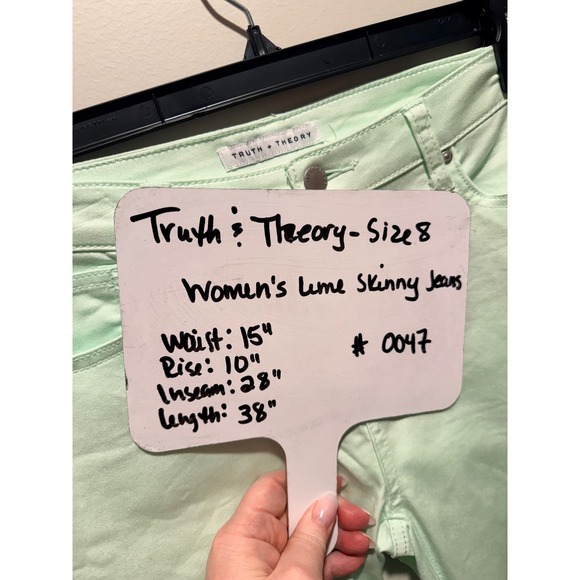 TRUTH + THEORY
Truth & Theory - Size 8
Women's Lime Skinny Jeans
Waist: 15"
# 0047
Rise: 10"
Inseam: 28"
Length: 38"